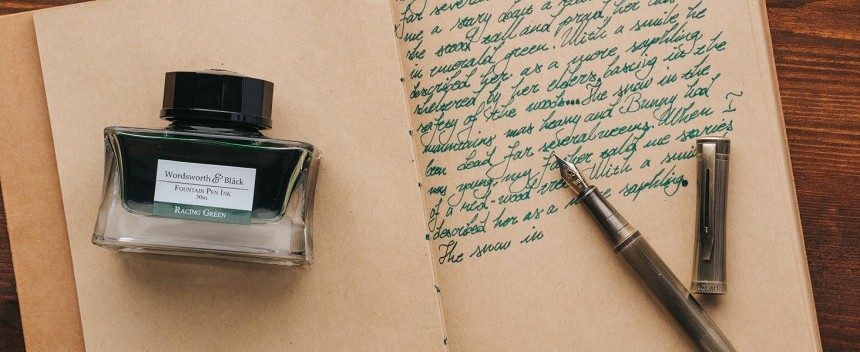 Wordsworth & Black
FOUNTAIN PEN INK
50ml
RACING GREEN
far several
me a story about a
she stood tall and proud her
in emerald green. With a smile he
described her as a more saphling
sheltered by her elders, basing in the
safety of the woods... The snow in the
mountains was heavy and Bunny had
been dead far several weeks. When I
was young my father told me stories
of a red-wood tree. With a smile
described her as a saphling.
The snow in